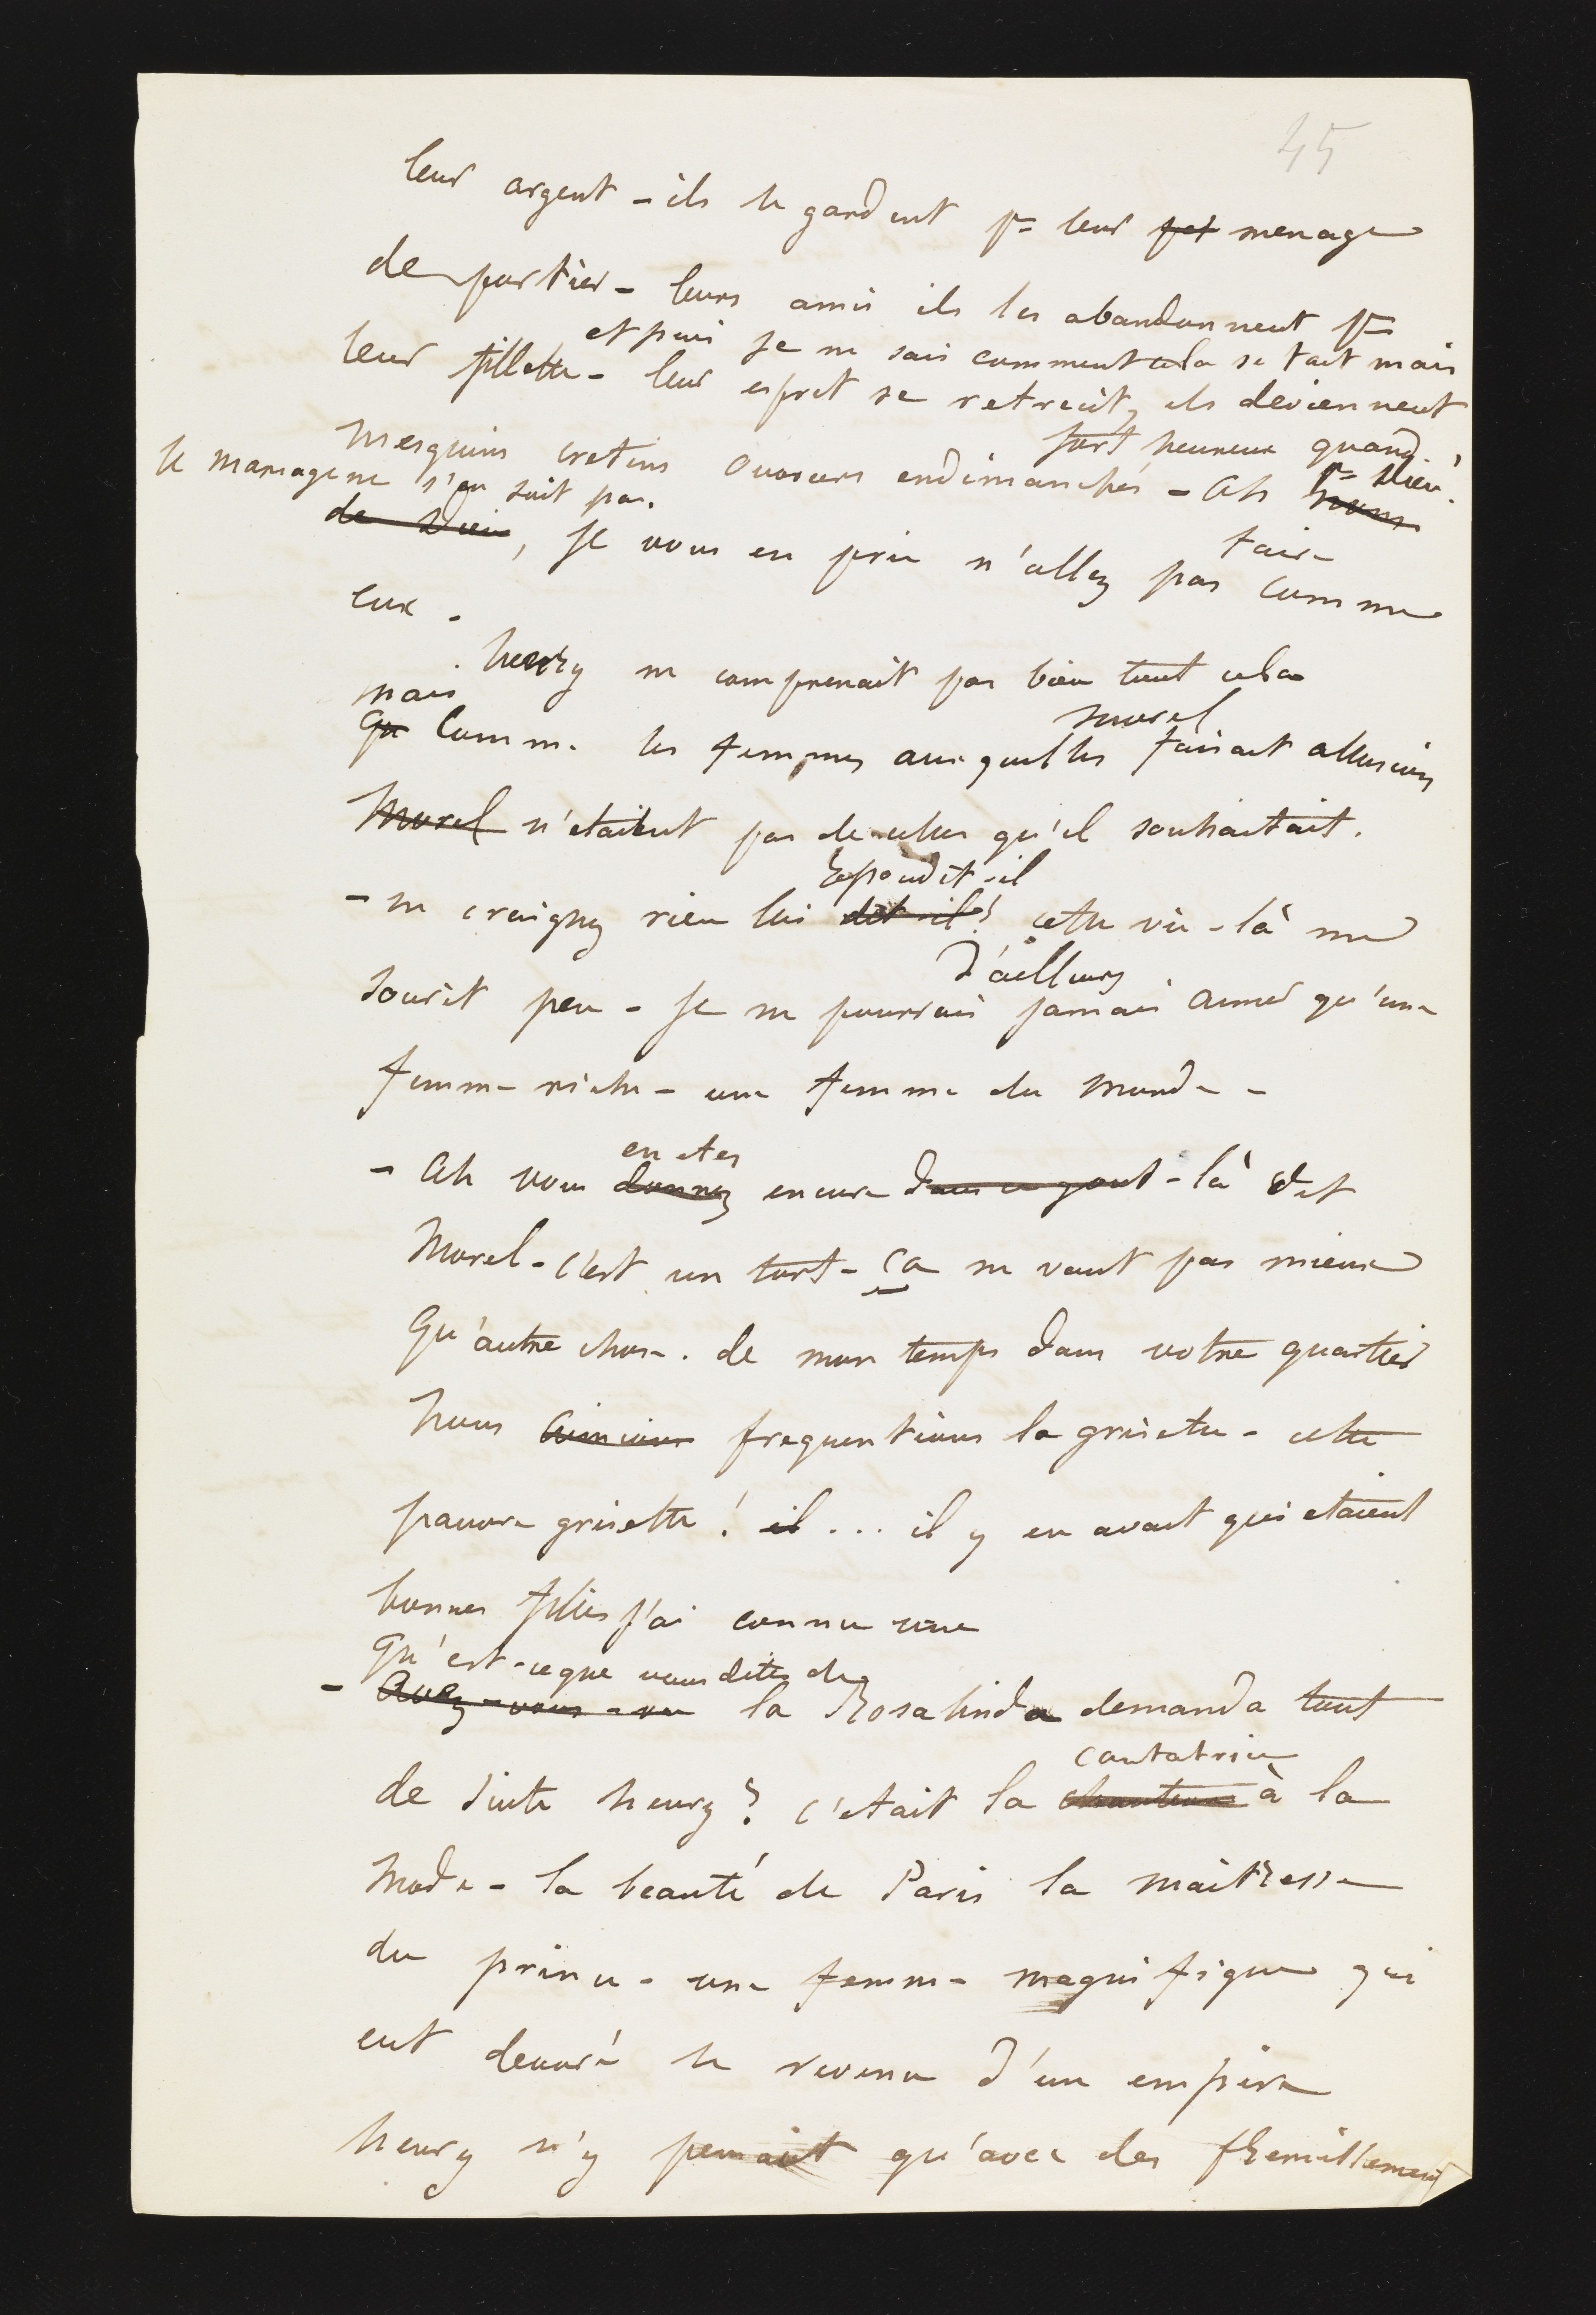 45
leur argent - ils le gardent pr leur pet menage
de portier - leurs amis ils les abandonnent pr
et puis je ne sais comment cela se fait mais
leur fillette - leur esprit se retrecit, ils deviennent
fort heureux quand
mesquins cretins ouvriers endimanchés - Ah nom
pr Dieu!
le mariage ne s'en suit pas.
de Dieu, je vous en prie n'allez pas comme
faire
eux.
henry ne comprenait pas bien tout cela
mais
Qu Comme les femmes auxquelles faisait allusion
morel
Morel n'etaient pas de celles qu'il souhaitait.
repondit-il
- ne craignez rien lui dit-il! cette vie-là me
d'ailleurs
sourit peu - je ne pourrais jamais aimer qu'une
femme riche - une femme du monde -
en etes
- Ah vous donnez encore dans ce gout-là dit
Morel - c'est un tort - ça ne vaut pas mieux
qu'autre chose. de mon temps dans votre quartier
nous aimions frequentions la grisette - cette
pauvre grisette! il ... il y en avait qui etaient
bonnes filles j'ai connu une
Qu'est-ce que vous dites de
- Avez-vous-vu la Rosalinda demanda tout
cantatrice
de suite henry? c'etait la chanteuse à la
mode - la beauté de Paris la maitresse
du prince - une femme magnifique qui
eut devoré le revenu d'un empire
henry n'y pensait qu'avec des fremillements